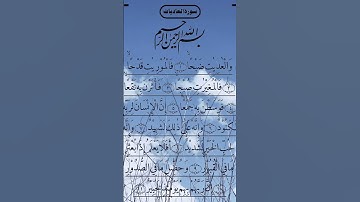 سورة العاديات
بسم الله الرحمن الرحيم
وَالْعَٰدِيَٰتِ ضَبْحًا ١ فَالْمُورِيَٰتِ قَدْحًا
٢ فَالْمُغِيرَٰتِ صُبْحًا ٣ فَأَثَرْنَ بِهِ نَقْعًا
٤ فَوَسَطْنَ بِهِ جَمْعًا ٥ إِنَّ الْإِنسَٰنَ لِرَبِّهِ
لَكَنُودٌ ٦ وَإِنَّهُ عَلَىٰ ذَٰلِكَ لَشَهِيدٌ ٧ وَإِنَّهُ
لِحُبِّ الْخَيْرِ لَشَدِيدٌ ٨ أَفَلَا يَعْلَمُ إِذَا بُعْثِرَ
مَا فِي الْقُبُورِ ٩ وَحُصِّلَ مَا فِي الصُّدُورِ
١٠ إِنَّ رَبَّهُم بِهِمْ يَوْمَئِذٍ لَّخَبِيرٌ ١١